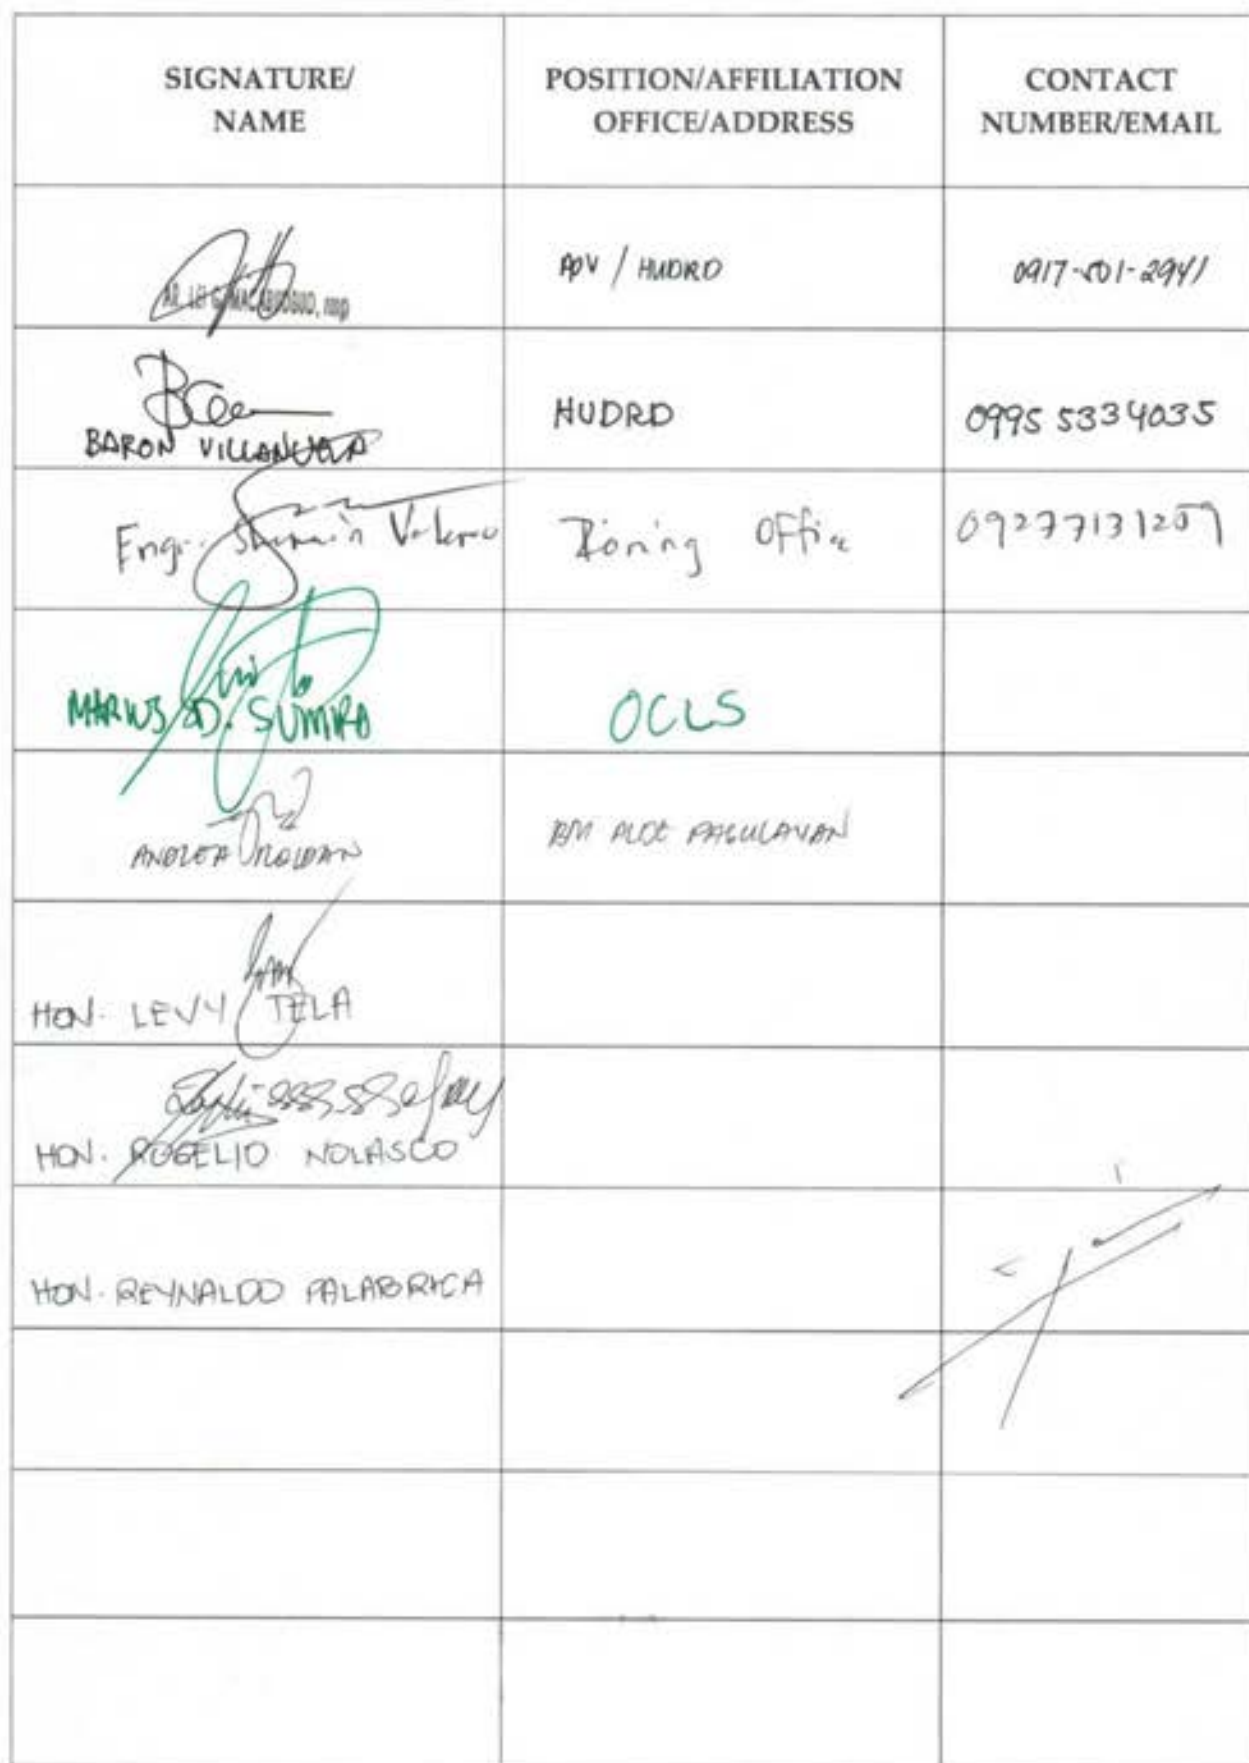 SIGNATURE/
NAME
POSITION/AFFILIATION
OFFICE/ADDRESS
CONTACT
NUMBER/EMAIL
AR. LEI G.
/ HUDRD
0917-501-2941
BARON VILLANUEVA
HUDRD
0995 5334035
Engr.
Zoning Office
09277131259
MARIUS D. SUMIRA
OCLS
ANDREA ROLDAN
BM ALDE PAGULAYAN
HON. LEVY TELA
HON. ROGELIO NOLASCO
HON. REYNALDO PALABRICA